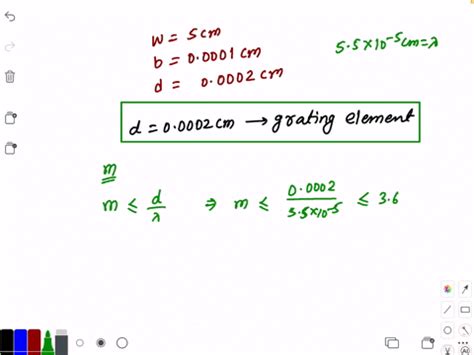 W = 5cm
b = 0.0001 cm
d = 0.0002 cm
5.5×10⁻⁵cm=λ
d = 0.0002cm → grating element
m
m ≤ d/λ ⇒ m ≤ 0.0002/5.5×10⁻⁵ ≤ 3.6